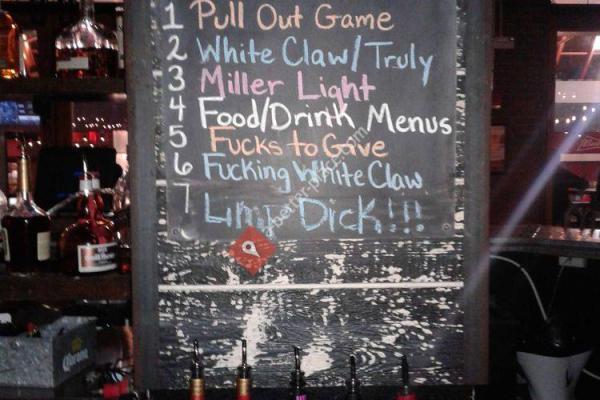 1 Pull Out Game
2 White Claw/Truly
3 Miller Light
4 Food/Drink Menus
5 Fucks to Gave
6 Fucking White Claw
7 Limp Dick!!!
Corona